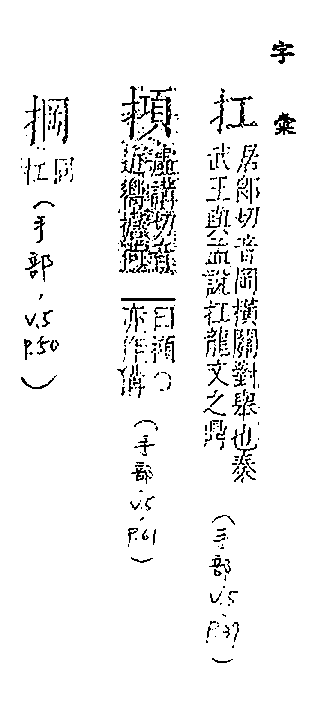 字彙
扛
居郎切音岡橫關對舉也秦
武王與孟說扛龍文之鼎
(手部,V.5
P.37)
摃
講切音
近
曰
亦作
(手部,V.5,
P.61)
掆
同
扛
(手部,V.5
P.50)